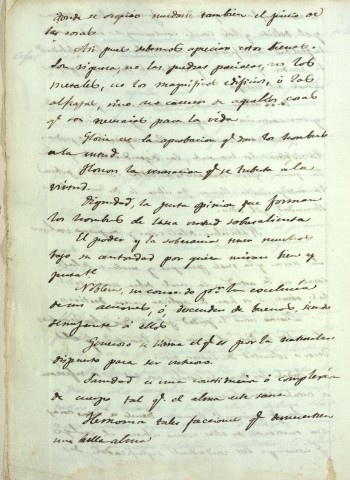 donde se
tambien el juicio de
las cosas
Asi pues debemos apreciar estos bienes.
Son riqueza, no las piedras preciosas, no los
metales, no los magnificos edificios, ó las
alhajas, sino no carecer de aquellas cosas
qᵉ son necesarias para la vida
Gloria es la aprobacion qᵉ dan los hombres
a la virtud.
Honor la veneracion qᵉ se tributa á la
virtud.
Dignidad, la justa opinion que forman
los hombres de una virtud sobresaliente
El poder y la soberania
bajo su autoridad por quien miran bien y
Nobleza, ser conocido pʳ. la excelencia
de sus acciones, ó, descender de buenos, siendo
semejante á ellos
Generoso se llama el qᵉ es por la naturaleza
dispuesto para ser virtuoso.
Sanidad es una constitucion ó complexion
de cuerpo tal qᵉ el alma este sana
Hermosura tales facciones qᵉ demuestren
una bella alma